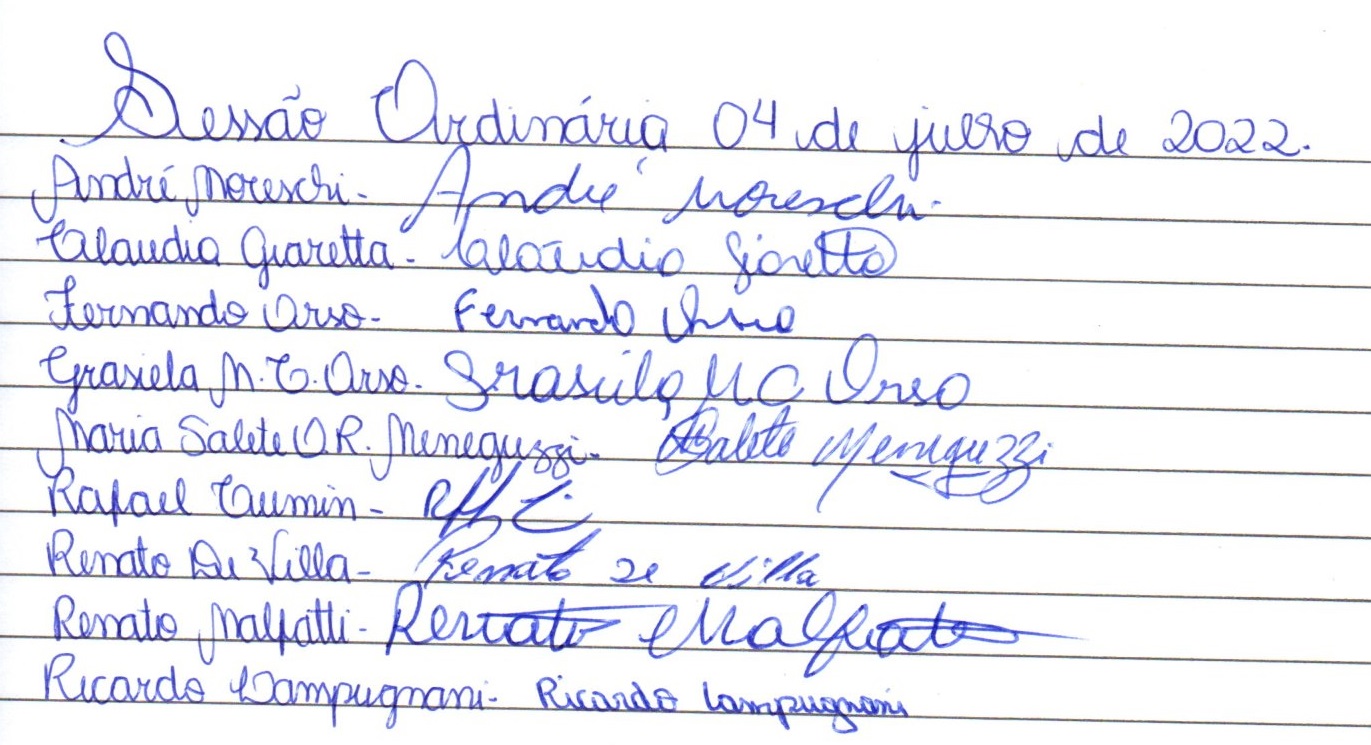 Sessão Ordinária 04 de julho de 2022.
André Moreschi - André Moreschi.
Claudia Giaretta - Claudia Giaretta
Fernando Orso - Fernando Orso
Grasiela M. C. Orso. Grasiela M C Orso
Maria Salete O.R. Meneguzzi - Salete Meneguzzi
Rafael Cumin -
Renato De Villa - Renato De Villa
Renato Malfatti - Renato Malfatti
Ricardo Lampugnani - Ricardo Lampugnani